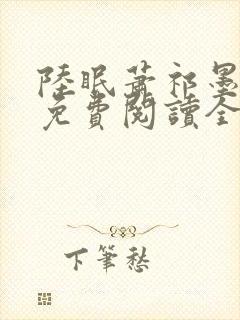 陸眠蕭祁墨
免費閱讀全
下筆愁